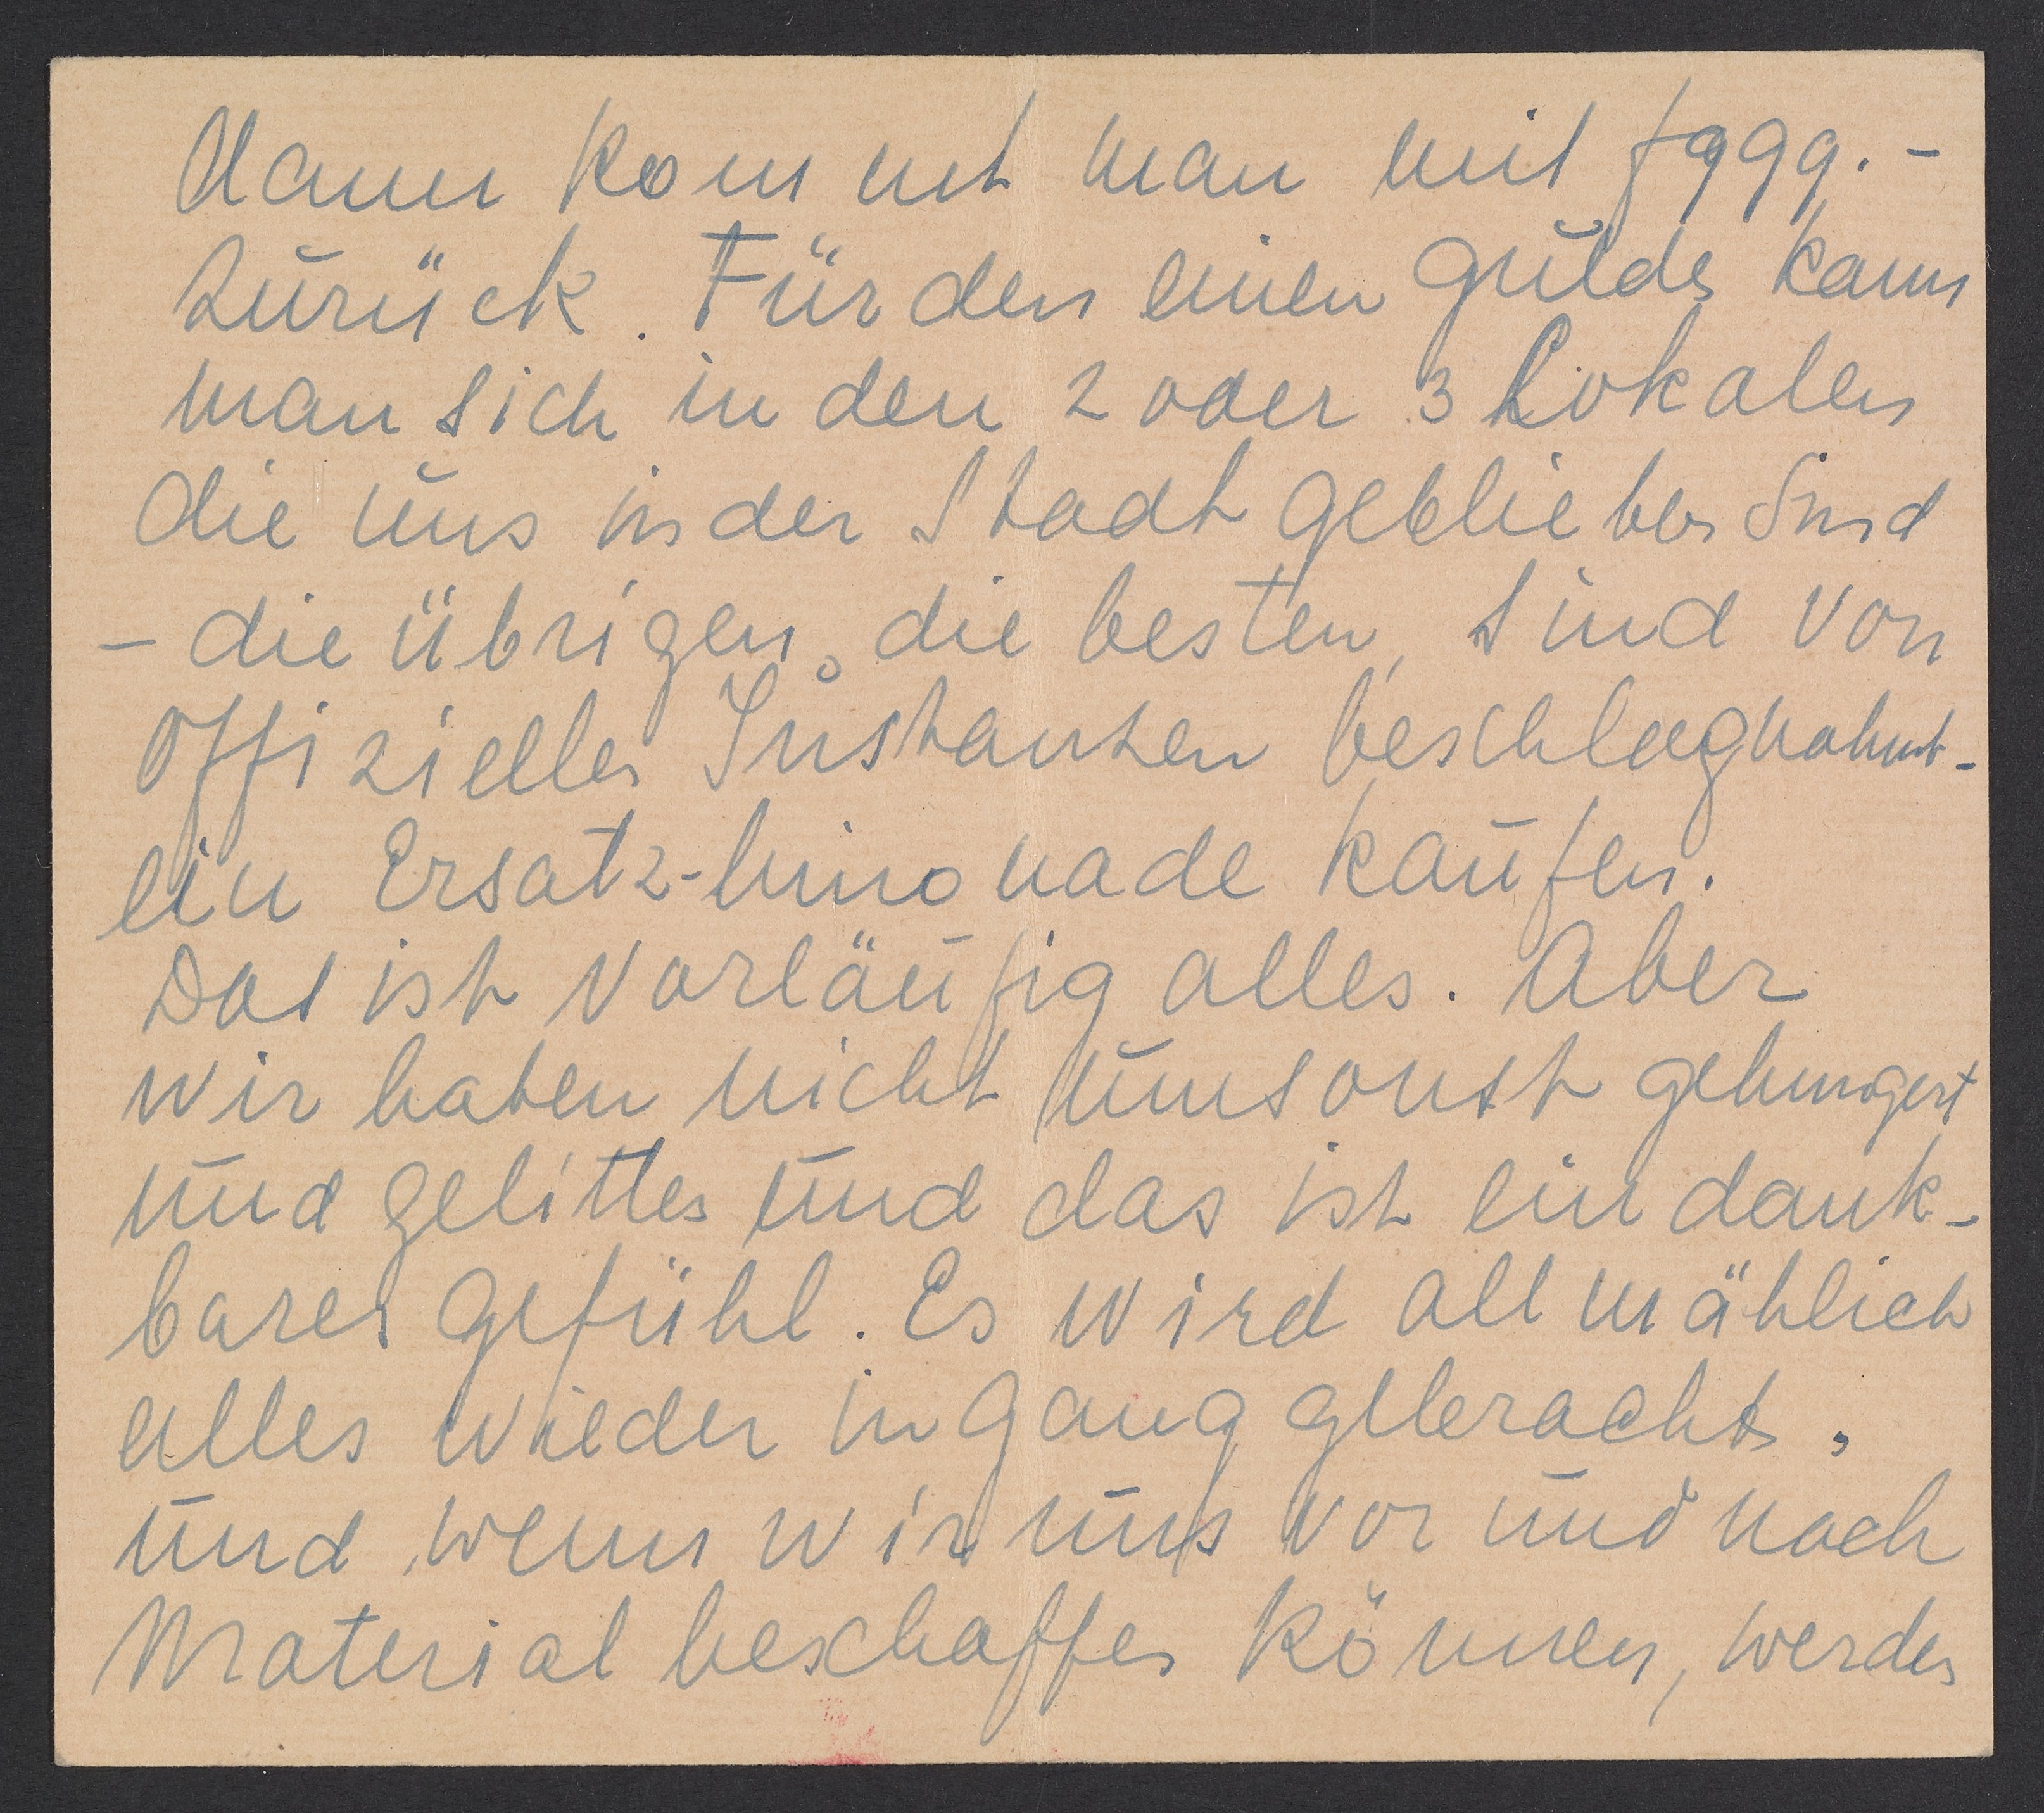 dann kommt man mit f 999.-
zurück. Für den einen Gulden kann
man sich in den 2 oder 3 Lokalen
die uns in der Stadt geblieben sind
- die übrigen, die besten, sind von
offiziellen Instanzen beschlagnahmt -
ein Ersatz-limonade kaufen.
Das ist vorläufig alles. Aber
wir haben nicht umsonst gehungert
und gelitten und das ist ein dank-
bares Gefühl. Es wird allmählich
alles wieder in Gang gebracht,
und wenn wir uns vor und nach
Material beschaffen können, werden